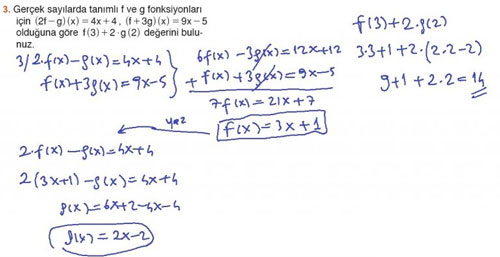 3. Gerçek sayılarda tanımlı f ve g fonksiyonları
için (2f-g)(x) = 4x+4, (f+3g)(x) = 9x-5
olduğuna göre f(3)+2·g(2) değerini bulu-
nuz.
3/2·f(x)-g(x)=4x+4
f(x)+3g(x)=9x-5
6f(x)-3g(x)=12x+12
+ f(x)+3g(x)=9x-5
7f(x)=21x+7
f(x)=3x+1
yaz
2·f(x)-g(x)=4x+4
2(3x+1)-g(x)=4x+4
g(x)=6x+2-4x-4
g(x)=2x-2
f(3)+2·g(2)
3·3+1+2·(2·2-2)
9+1+2·2=14